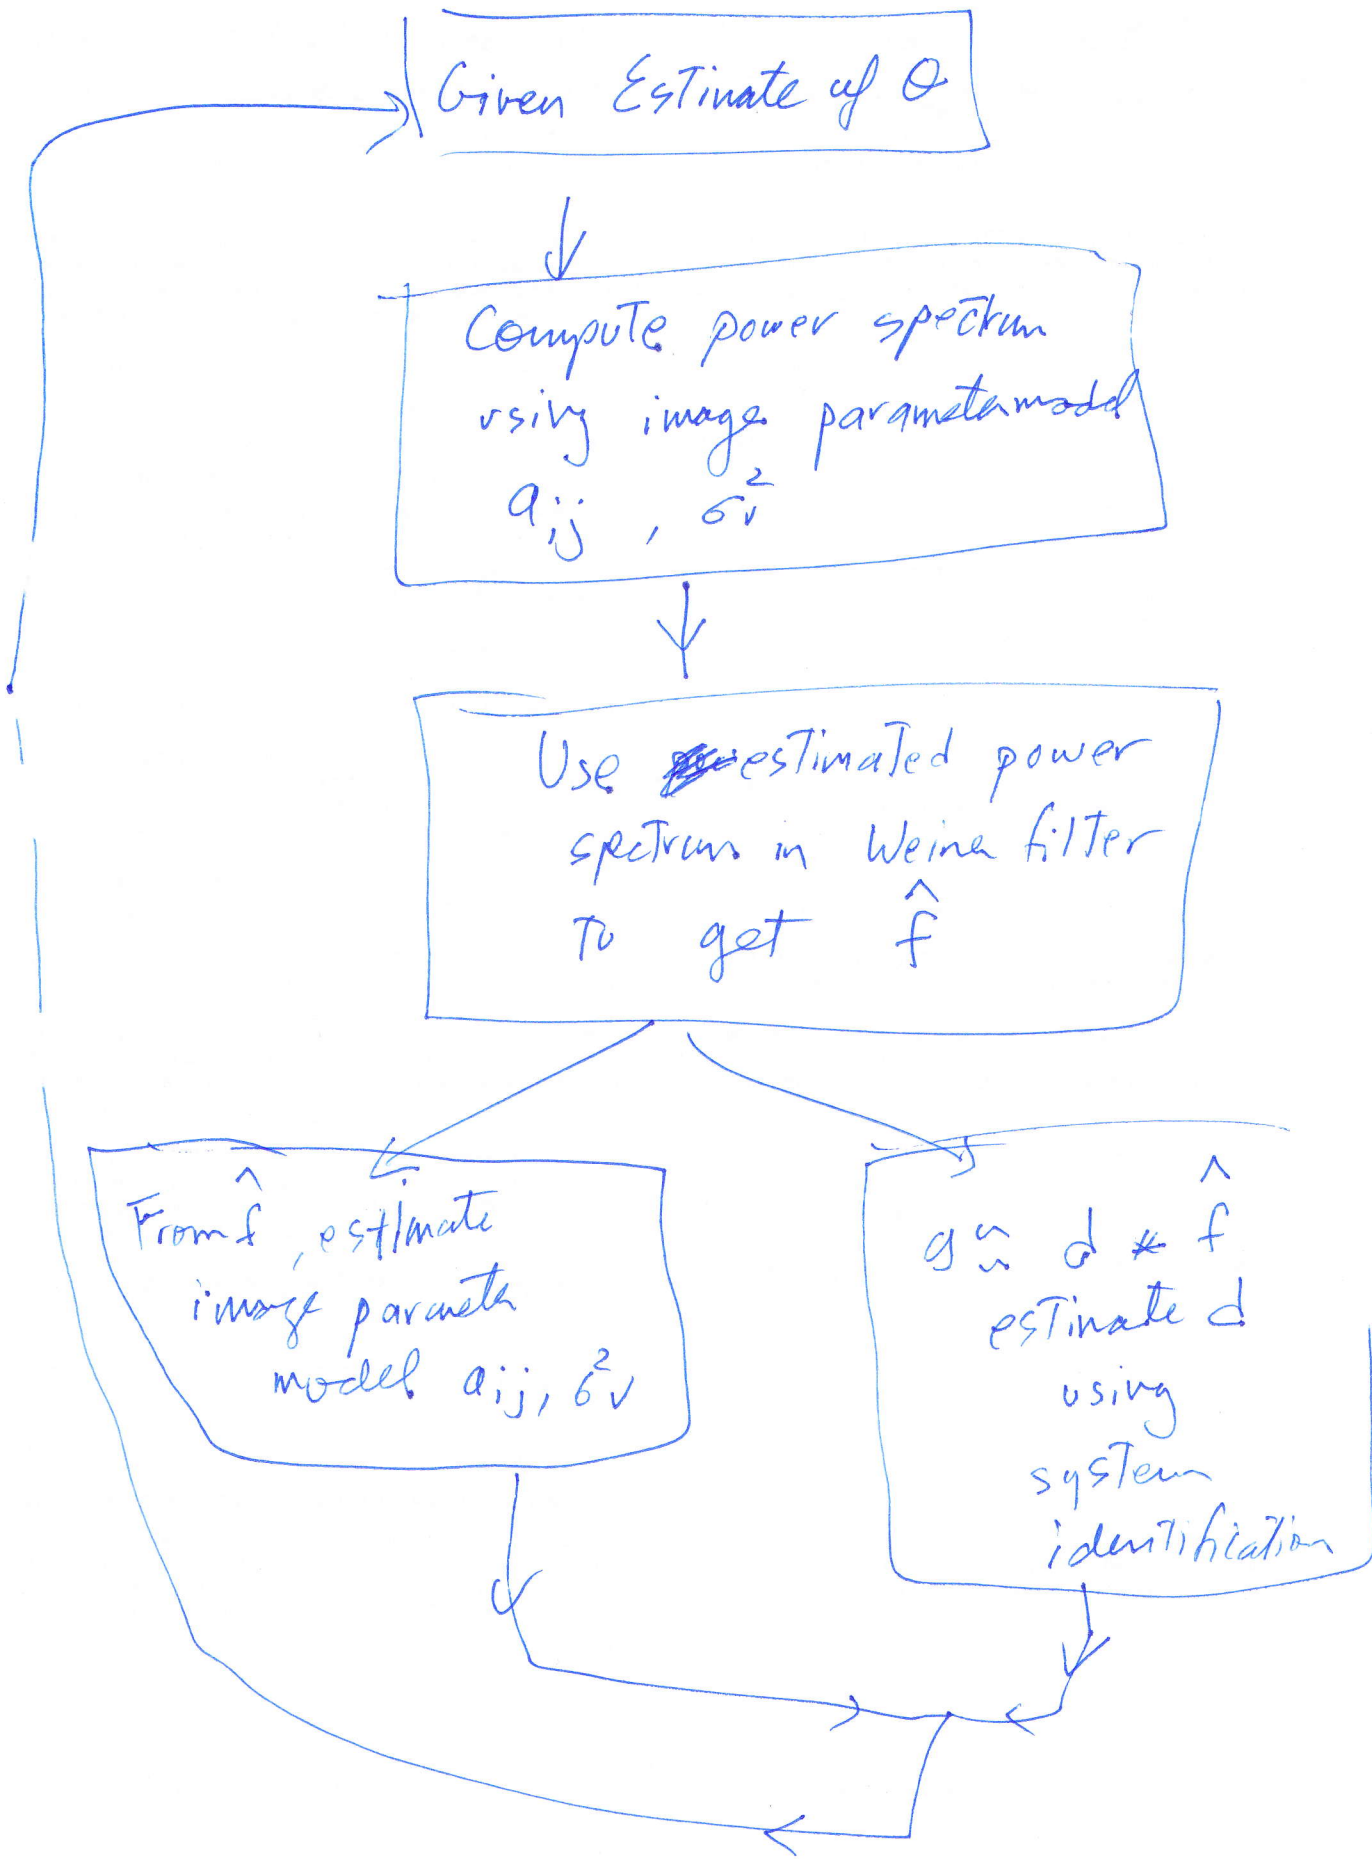 Given Estimate of θ
Compute power spectrum
using image parameter model
a_ij , σ_v^2
Use estimated power
spectrum in Weiner filter
To get f̂
From f̂, estimate
image parameter
model a_ij, σ^2_v
g ≈ d * f̂
estimate d
using
system
identification